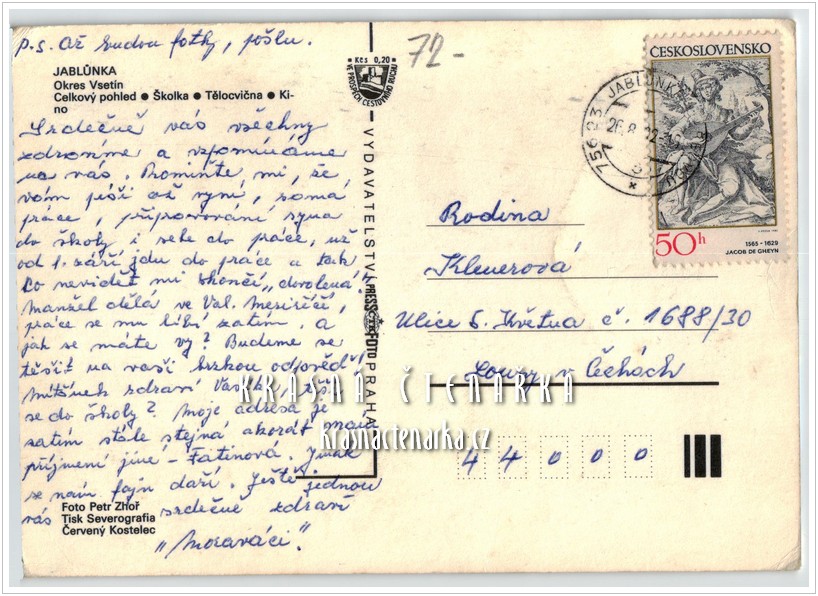 p.s. Až budou fotky, pošlu.
72-
JABLŮNKA
Okres Vsetín
Celkový pohled ● Školka ● Tělocvična ● Ki-
no
Srdečně vás všechny
zdravíme a vzpomínáme
na vás. Promiňte mi, že
vám píši až nyní, samá
práce, připravování syna
do školy i sebe do práce, už
od 1. září jdu do práce a tak
co nevidět mi skončí „dovolená".
Manžel dělá ve Val. Meziříčí,
práce se mu líbí zatím, a
jak se máte vy? Budeme se
těšit na vaši brzkou odpověď!
Mitůnek zdraví Vaška,
se do školy? Moje adresa je
zatím stále stejná akorát mám
příjmení jiné - Fatinová. Jinak
se nám fajn daří. Ještě jednou
vás srdečně zdraví
„Moraváci".
Foto Petr Zhoř
Tisk Severografia
Červený Kostelec
Kčs 0,20
VE PROSPĚCH CESTOVNÍHO RUCHU
VYDAVATELSTVÍ PRESSFOTO PRAHA
ČESKOSLOVENSKO
50h
1565-1629
JACOB DE GHEYN
756 23 JABLŮNKA
26.8.82-10
Rodina
Klenerová
Ulice 5. Května č. 1688/30
Louny v Čechách
44000
KRÁSNÁ ČTENÁŘKA
krasnactenarka.cz